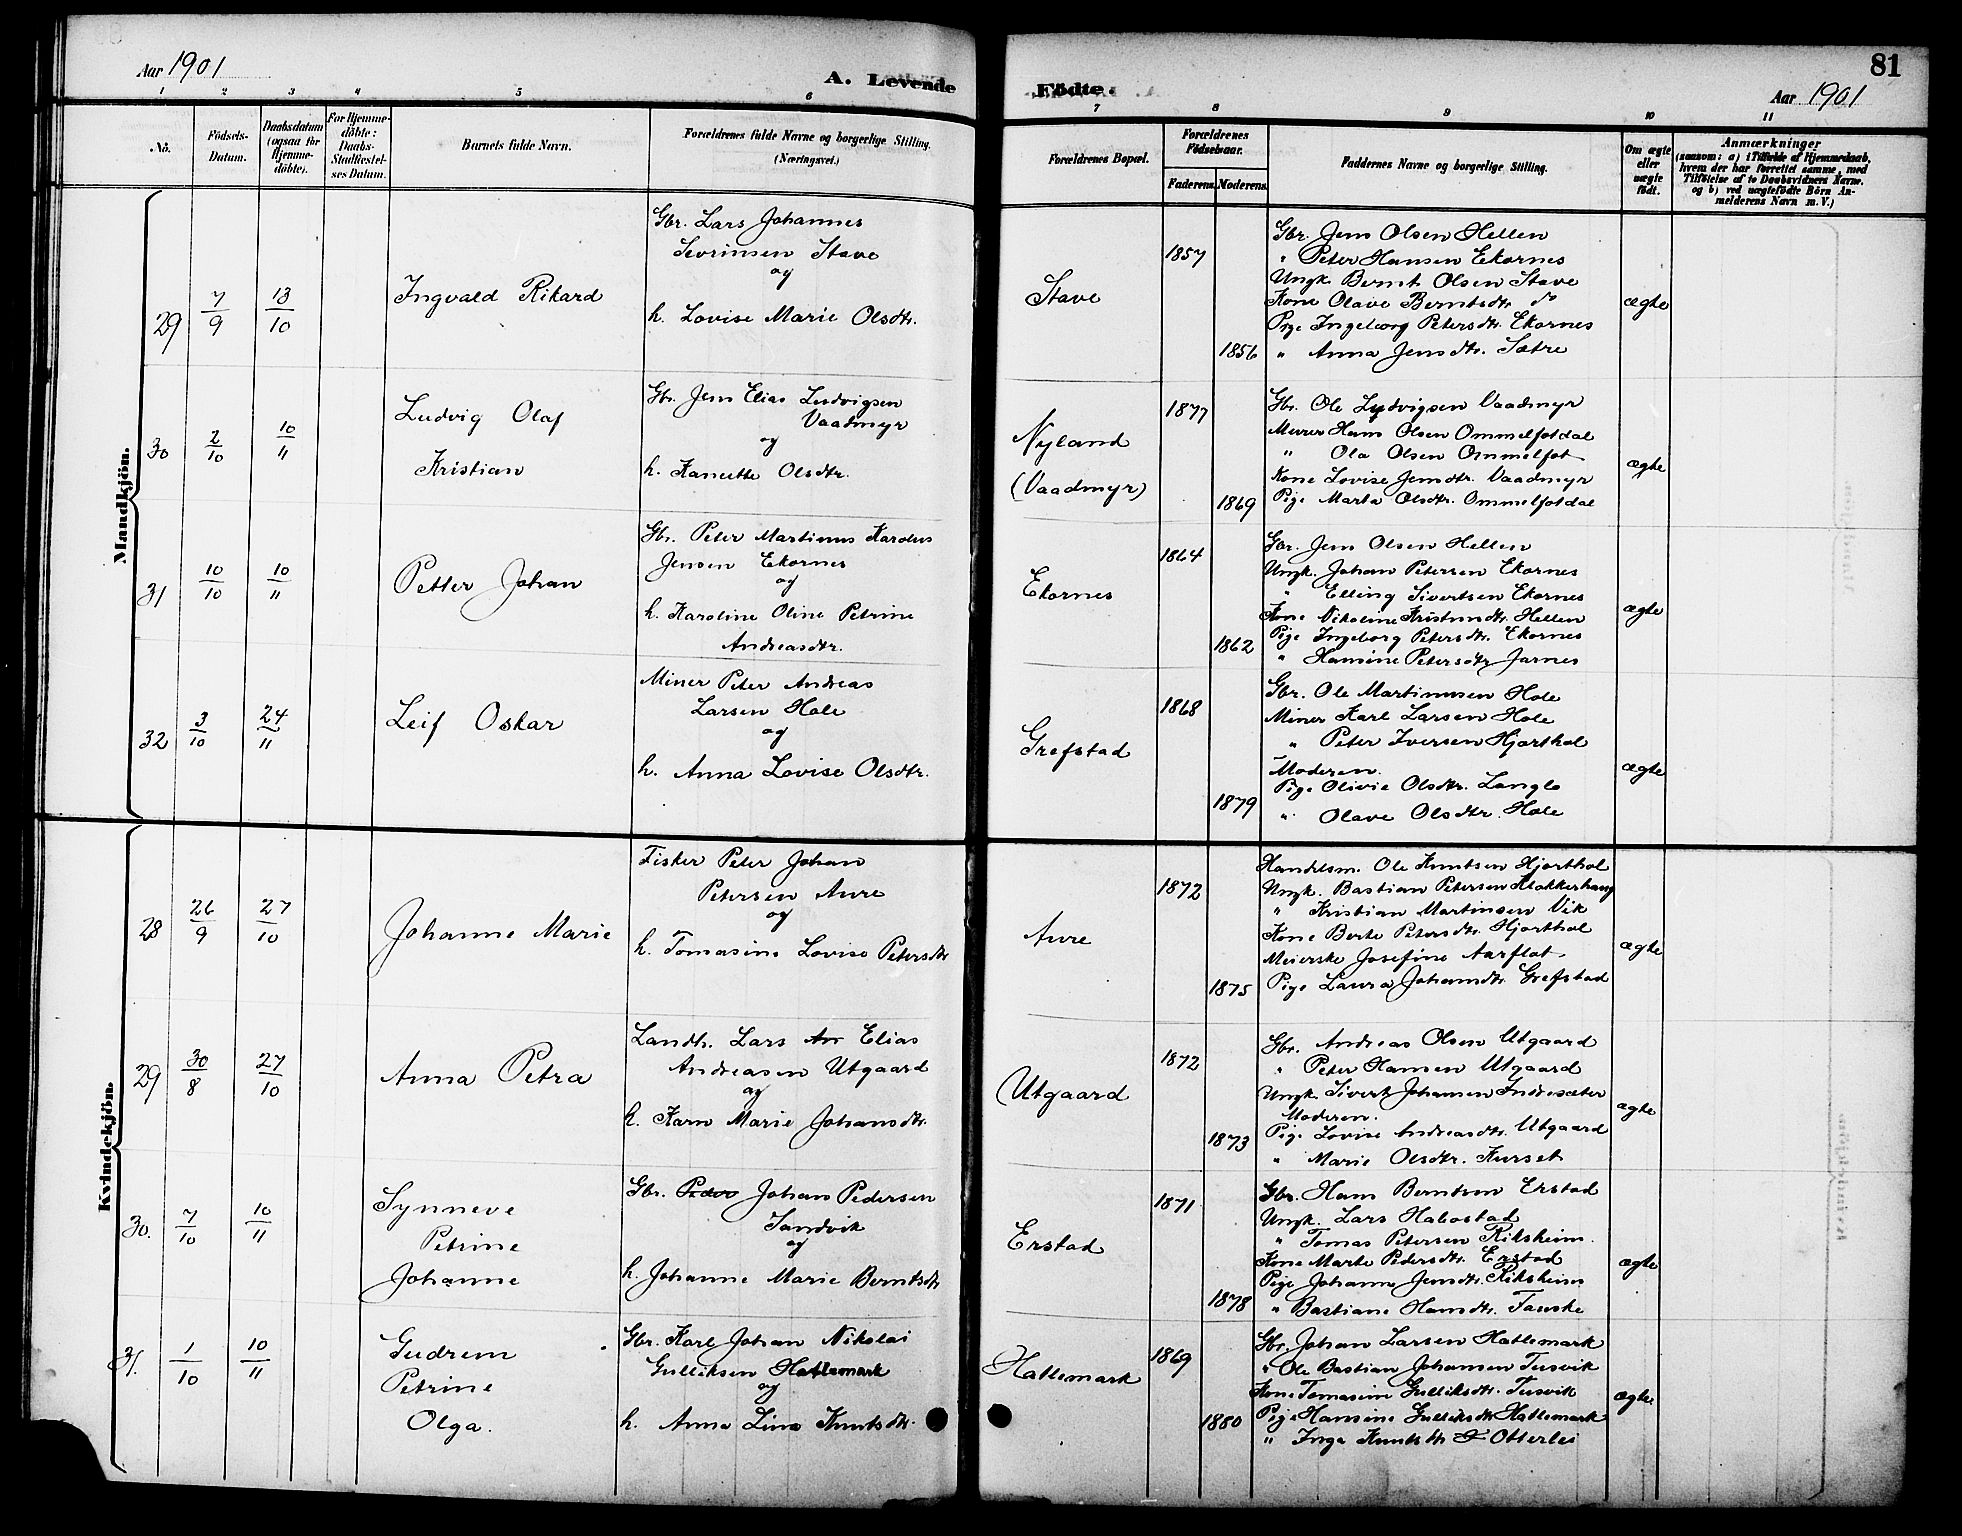 Aar 1901
A. Levende
1 2 3 4 5 6
No.
Födsels-
Datum.
Daabsdatum
(ogsaa for
Hjemme-
döbte).
For Hjemme-
döbte:
Daabs-
Stadfæstel-
ses Datum.
Barnets fulde Navn.
Forældrenes fulde Navne og borgerlige Stilling.
(Næringsvei.)
Mandkjön.
29 7/9 13/10 Ingvald Rikard
Gbr. Lars Johannes
Sevrinsen Stave
og
h. Lovise Marie Olsdtr.
30 2/10 10/11 Ludvig Olaf
Kristian
Gbr. Jens Elias Ludvigsen
Vaadmyr
og
h. Kanutte Olsdtr.
31 10/10 10/11 Petter Johan
Gbr. Peter Martinus Karolus
Jensen Ekornes
og
h. Karoline Oline Petrine
Andreasdtr.
32 3/10 24/11 Leif Oskar
Miner Peter Andreas
Larsen Hole
og
h. Anna Lovise Olsdtr.
Kvindekjön.
28 26/9 27/10 Johanne Marie
Fisker Peter Johan
Petersen Aure
og
h. Tomasine Lovise Petersdtr
29 30/8 27/10 Anna Petra
Landh. Lars An Elias
Andreasen Utgaard
og
h. Karn Marie Johansdtr.
30. 7/10 10/11 Synneve
Petrine
Johanne
Gbr. Peder Johan Pedersen
Sandvik
og
h. Johanne Marie Berntsdtr
31. 1/10 10/11 Gudrun
Petrine
Olga.
Gbr. Karl Johan Nikolai
Gulliksen Hatlemark
og
h. Anna Lina Knutsdtr.
81
Födte.
Aar 1901
7 8 9 10 11
Forældrenes Bopæl.
Forældrenes
Födselsaar.
Faderens. Moderens.
Faddernes Navne og borgerlige Stilling.
Om ægte
eller
uægte
födt.
Anmærkninger
(saasom: a) i Tilfælde af Hjemmedaab,
hvem der har forrettet samme, med
Tilföielse af to Daabsvidners Navne,
og b) ved uægtefödte Börn An-
melderens Navn m. V.)
Stave 1857 1856 ægte
Gbr. Jens Olsen Hellen
" Peter Hansen Ekornes
Ungk. Bernt Olsen Stave
Kone Olave Berntsdtr. do
Pige Ingeborg Petersdtr. Ekornes
" Anna Jensdtr. Sætre
Nyland
(Vaadmyr) 1877 1869 ægte
Gbr. Ole Ludvigsen Vaadmyr
Murer Hans Olsen Ommelfotdal
" Ola Olsen Ommelfot
Kone Lovise Jensdtr. Vaadmyr
Pige Marta Olsdtr. Ommelfotdal
Ekornes 1864 1862 ægte
Gbr. Jens Olsen Hellen
Ungk. Johan Petersen Ekornes
" Elling Sivertsen Ekornes
Kone Nikoline Kristensdtr. Hellen
Pige Ingeborg Petersdtr. Ekornes
" Hansine Petersdtr Jarnes
Grefstad 1868 1879 ægte
Gbr. Ole Martinusen Hole
Miner Karl Larsen Hole
" Peter Iversen Hjorthol
Moderen.
Pige Olivie Olsdtr. Langlo
" Olave Olsdtr. Hole
Aure 1872 1875 ægte
Handelsm. Ole Knutsen Hjorthol
Ungk. Bastian Petersen Klokkerhaug
" Kristian Martinsen Vik
Kone Berte Petersdtr. Hjorthol
Meierske Josefine Aarflot
Pige Laura Johansdtr. Grefstad
Utgaard 1872 1873 ægte
Gbr. Andreas Olsen Utgaard
" Peter Hansen Utgaard
Ungk. Sivert Johansen Indresæter
Moderen.
Pige Lovise Andreasdtr. Utgaard
" Marie Olsdtr. Kurset
Erstad 1871 1878 ægte
Gbr. Hans Berntsen Erstad
Ungk. Lars Habostad
" Tomas Petersen Riksheim
Kone Marte Pedersdtr. Erstad
Pige Johanne Jensdtr. Riksheim
" Bastiane Hansdtr. Tauske
Hatlemark 1869 1880 ægte
Gbr. Johan Larsen Hatlemark
" Ole Bastian Johansen Tusvik
Kone Tomasine Gulliksdtr. Tusvik
Pige Hansine Gulliksdtr Hatlemark
" Inga Knutsdtr Otterlei